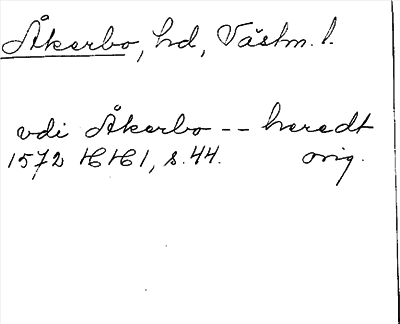 Åkerbo, hd, Västm. l.
vdi Åkerbo -- heredt
1572 HH1, s.44. orig.